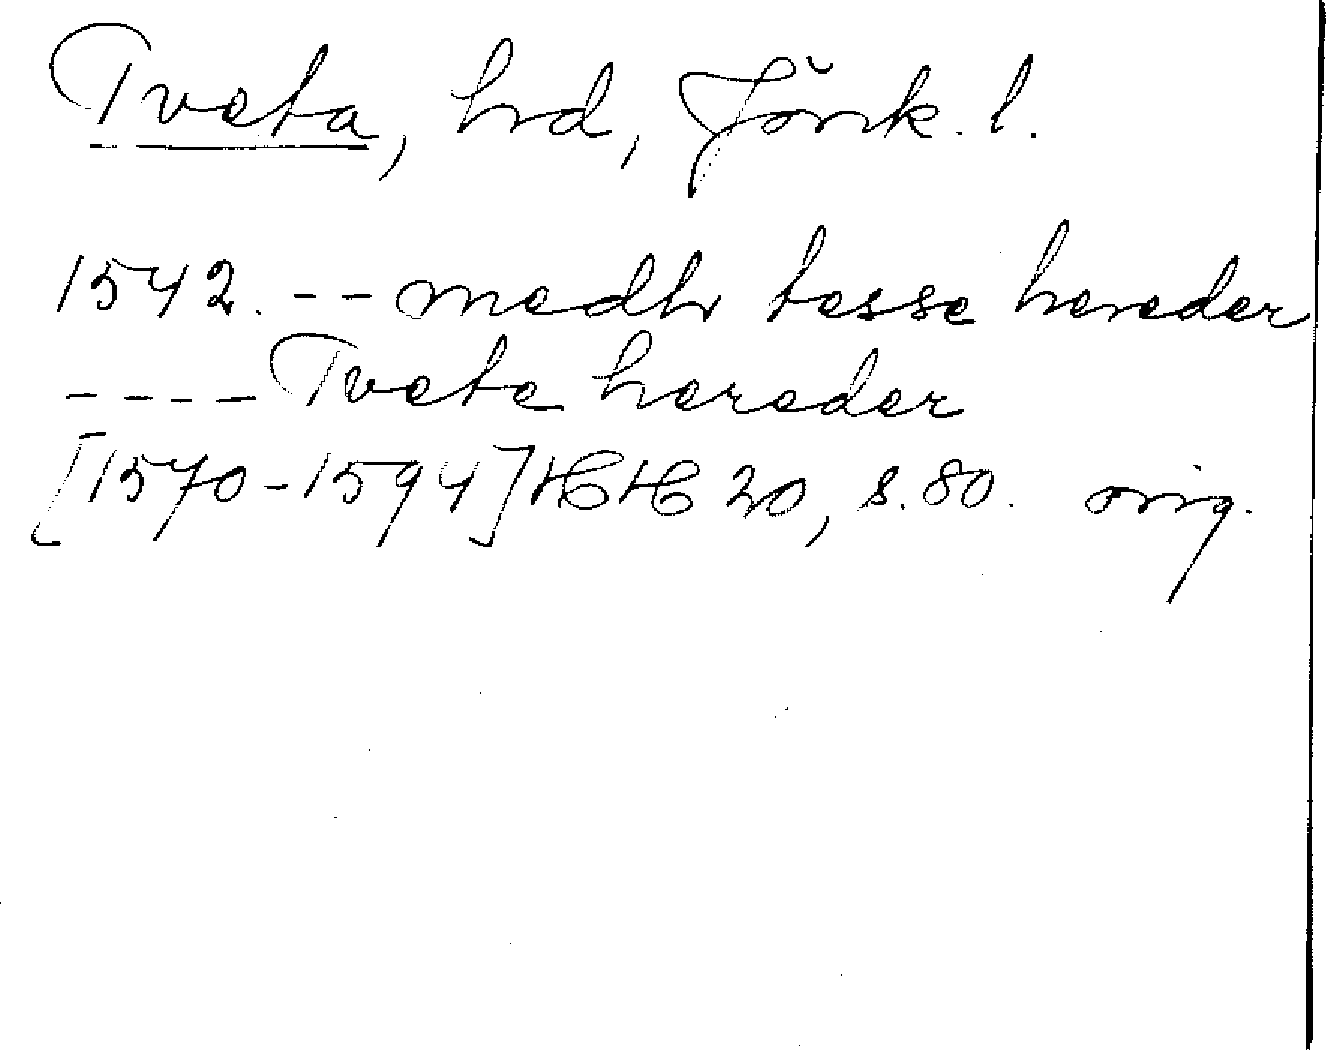 Tveta, hrd, Jönk. l.
1542. -- medh tesse hereder
---- Tveta hereder
[1570-1594] HH 20, s. 80. orig.